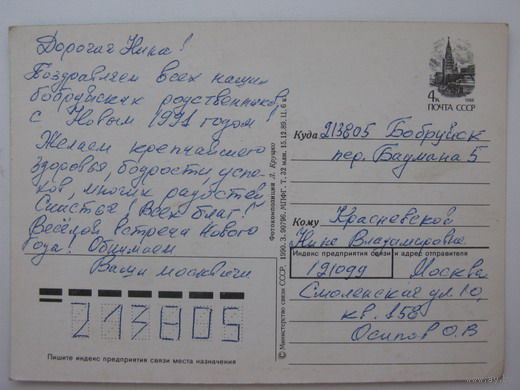 Дорогая Нина!
Поздравляем всех наших
бобруйских родственников
с Новым 1991 годом!
Желаем крепчайшего
здоровья, бодрости, успе-
хов, многих радостей,
Счастья! Всех благ!
Весёлой встречи Нового
года! Обнимаем
Ваши москвичи
213805
Пишите индекс предприятия связи места назначения
Фотокомпозиция Л. Круцко
© Министерство связи СССР. 1990. З. 90796. МПФГ. Т. 32 млн. 15.12.89. Ц. 6 к.
4к
1988
ПОЧТА СССР
Куда 213805 Бобруйск
пер. Баумана 5
Кому Красневской
Нине Владимировне
Индекс предприятия связи и адрес отправителя
121099 Москва
Смоленская ул. 10,
кв. 158
Осипов О.В